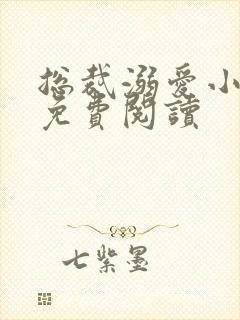 总裁溺爱小
免費閱讀
七紫墨